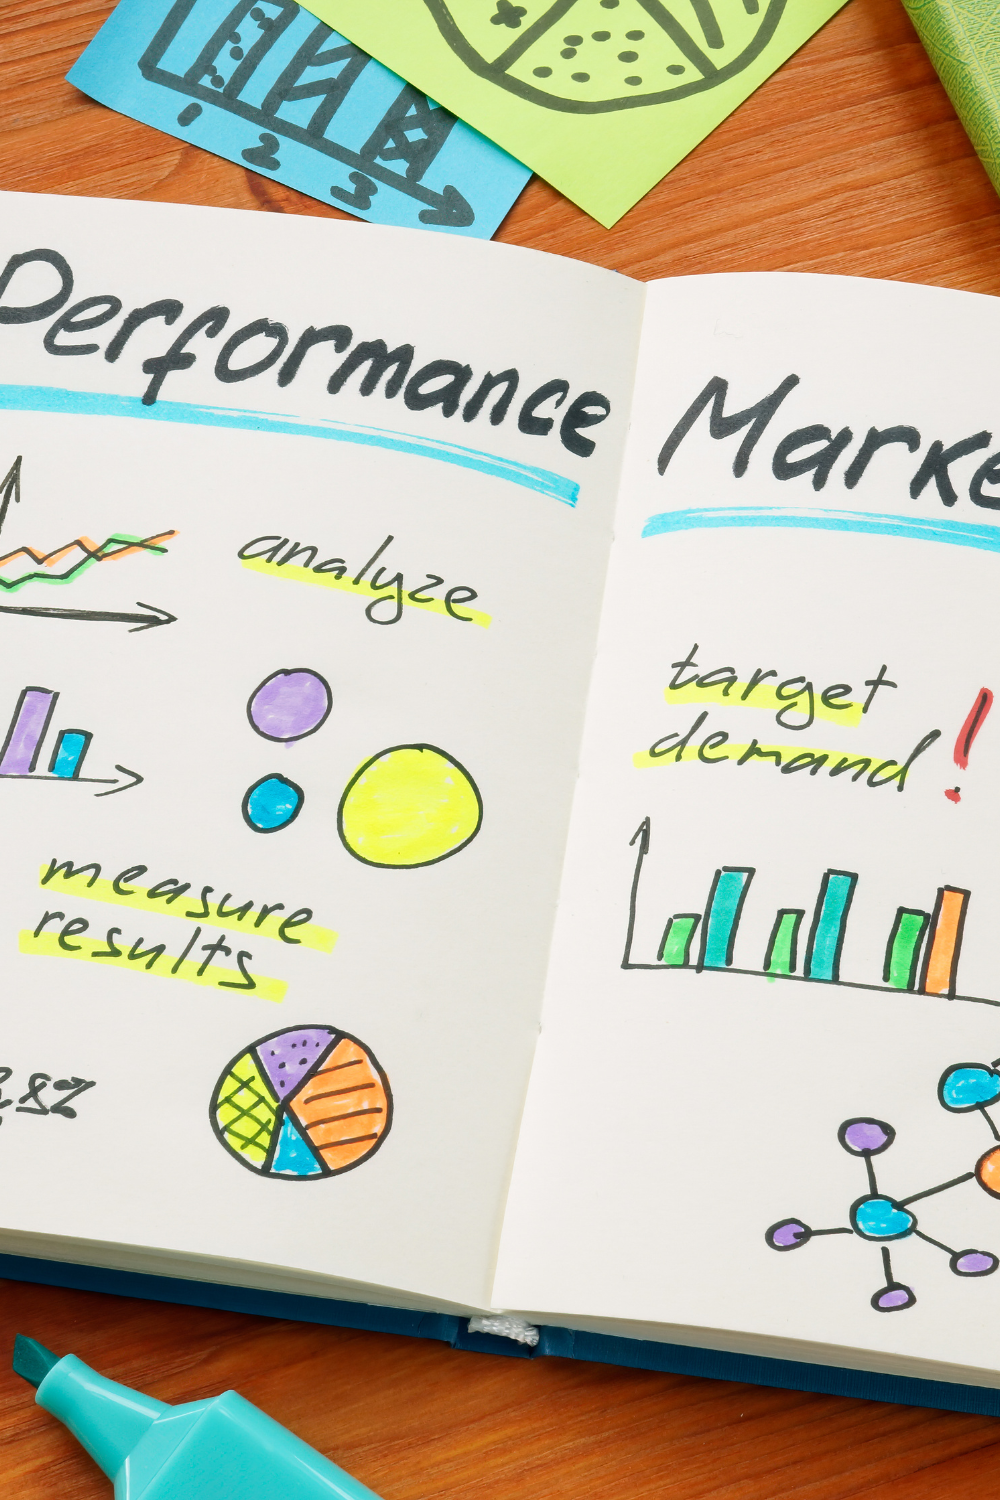 1 2 3
Performance
analyze
measure
results
Marke
target
demand!